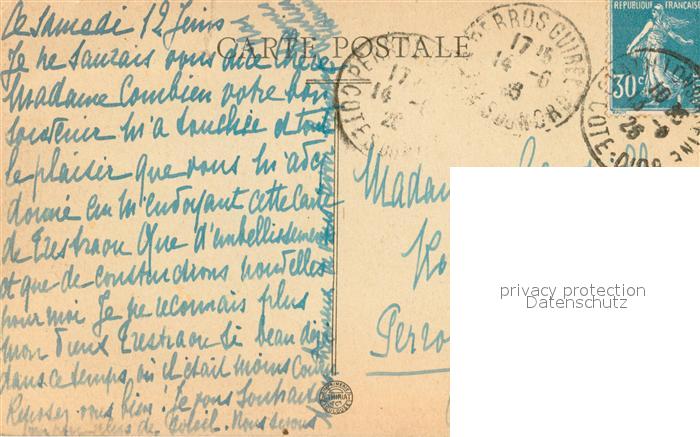 Ce Samedi 12 Juin
Je ne saurais vous dire chère
Madame Combien votre bon
souvenir m'a touchée et tout
le plaisir que vous m'avez
donné en m'envoyant cette Carte
de Trestraou Que d'embellissements
et que de constructions nouvelles
pour moi Je ne reconnais plus
mon vieux Trestraou si beau déjà
dans ce temps, où il était moins Connu
Reposez-vous bien! Je vous souhaite
de soleil. Nous serons
CARTE POSTALE
PERROS GUIREC
17
14 - 6
26
COTES DU NORD
REPUBLIQUE FRANÇAISE
30c
Madame
Perro
privacy protection
Datenschutz